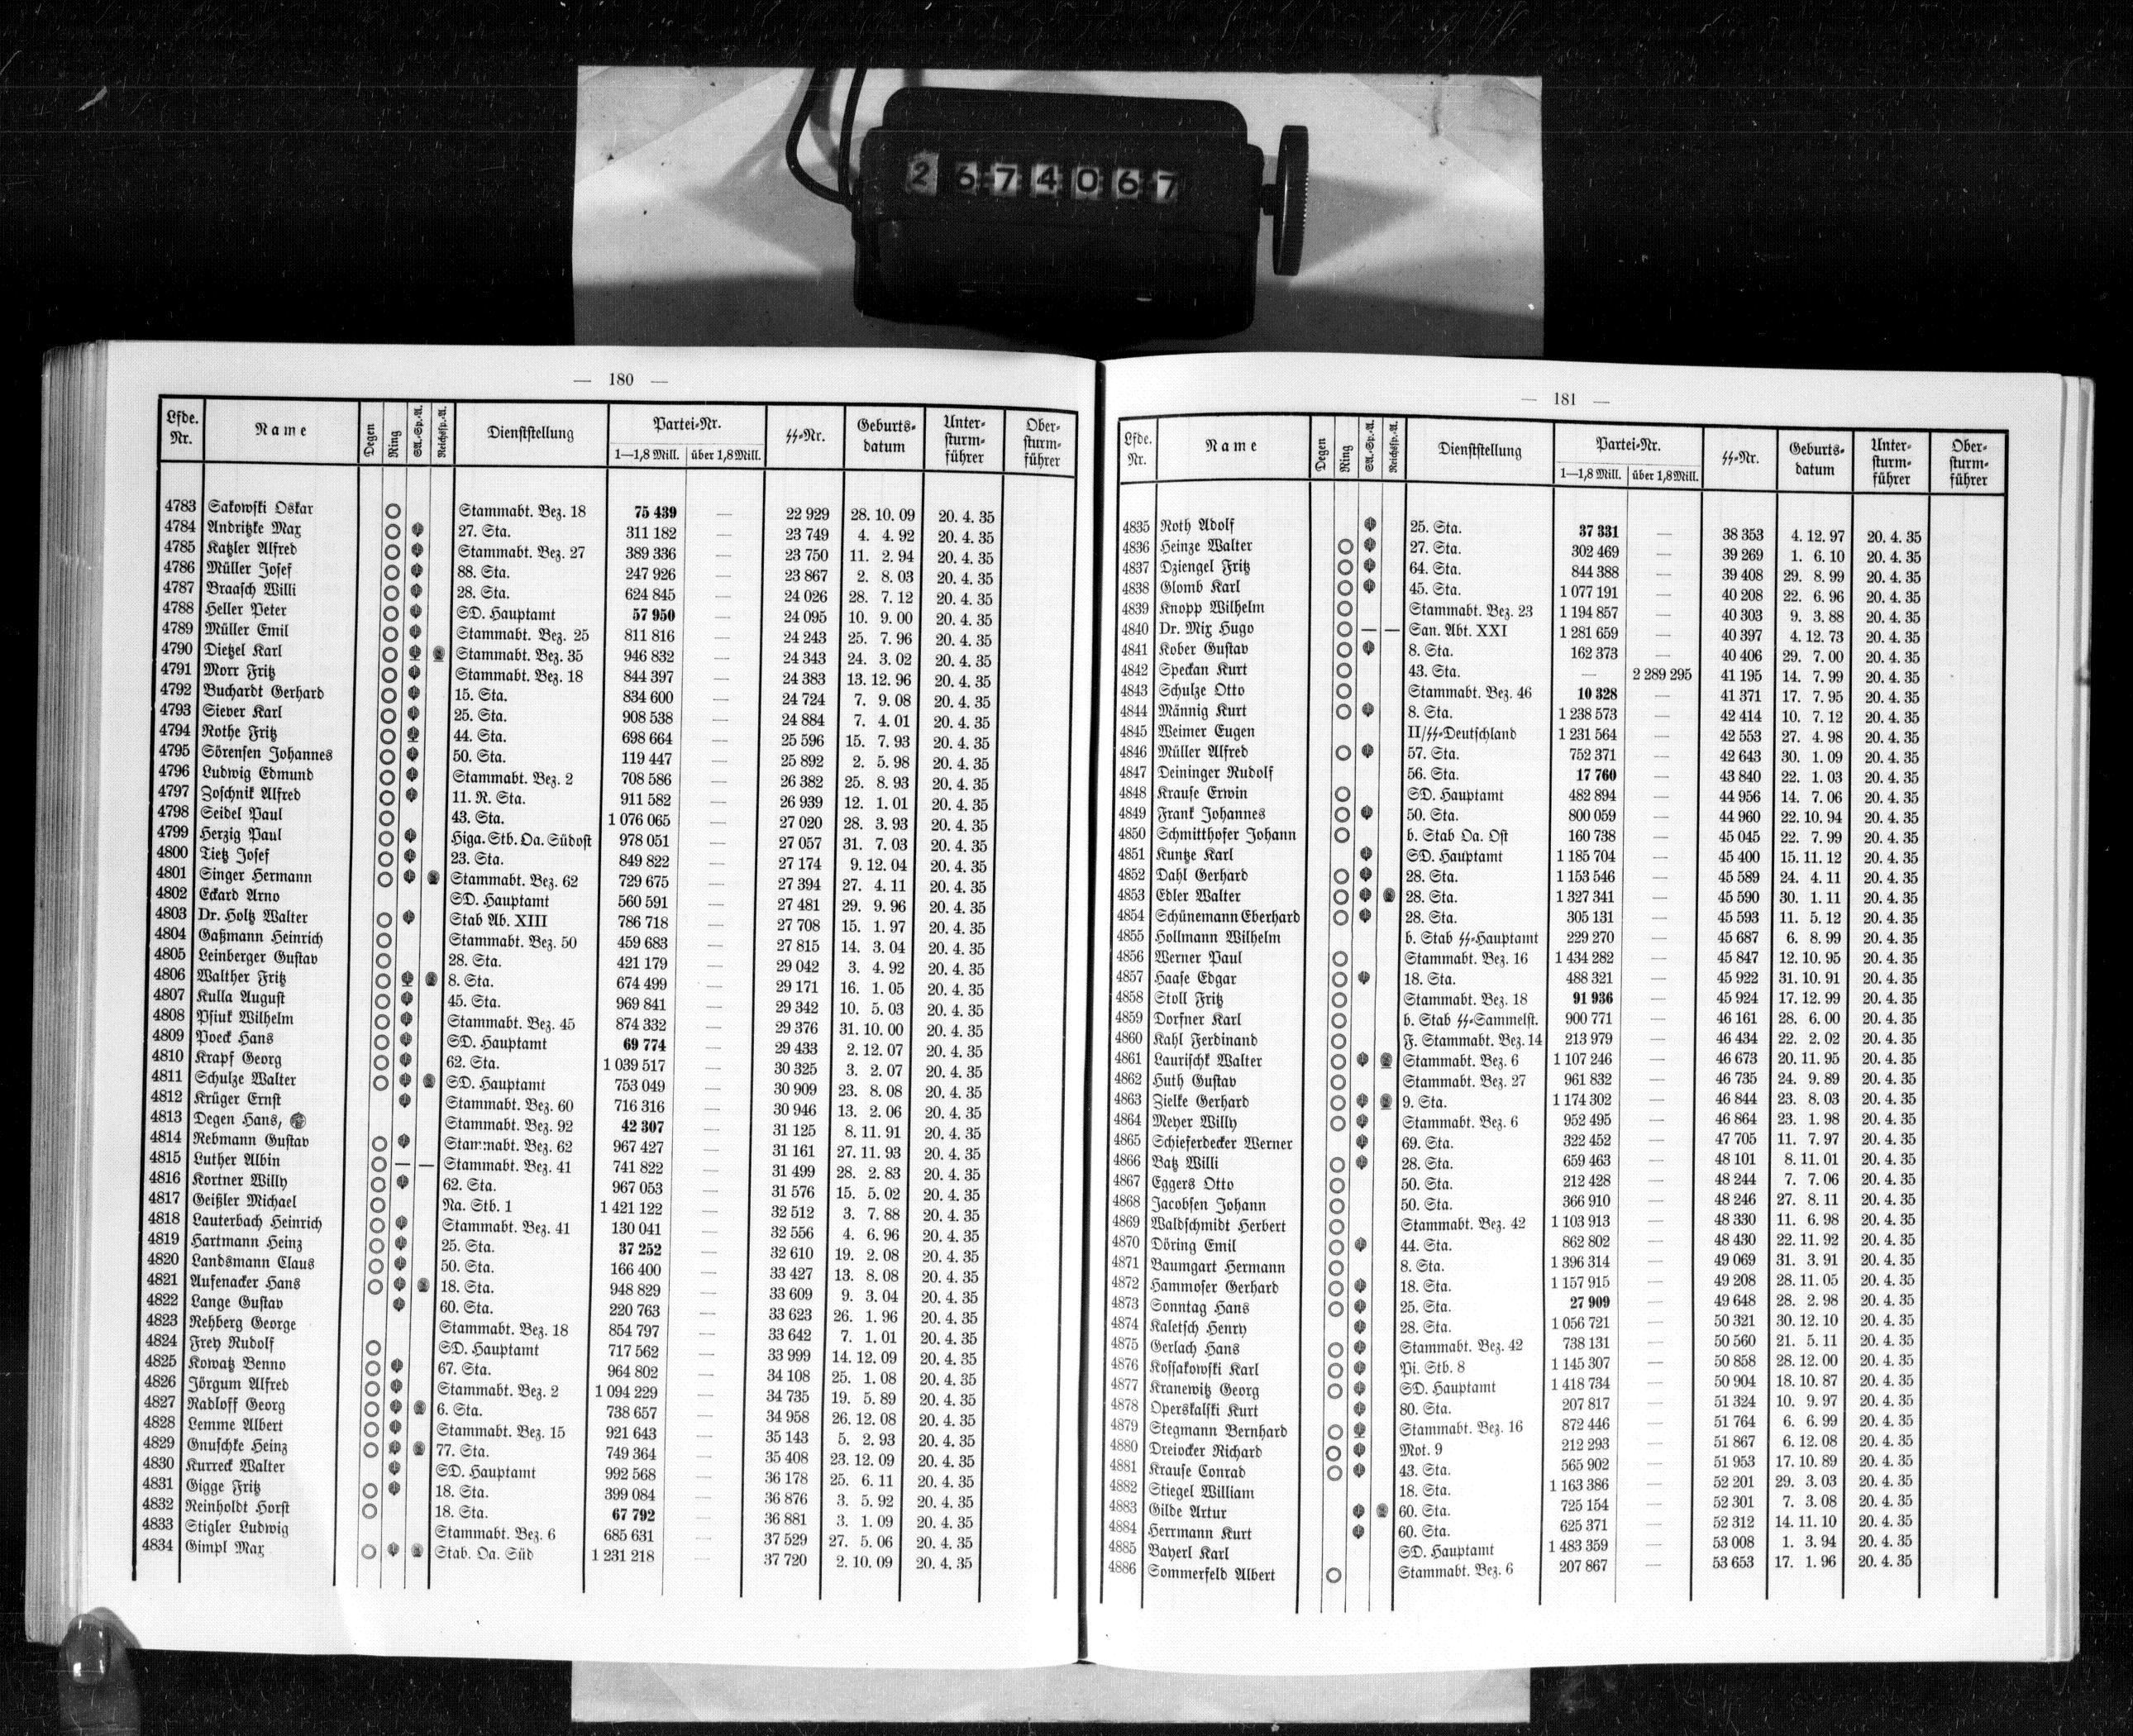 2674067
— 180 —
Lfde. Nr. Name Degen Ring SA.-Sp.-A. Reichssp.-A. Dienststellung Partei-Nr. 1—1,8 Mill. über 1,8 Mill. ᛋᛋ-Nr. Geburts-datum Unter-sturm-führer Ober-sturm-führer
4783 Sakowski Oskar Stammabt. Bez. 18 75 439 — 22 929 28. 10. 09 20. 4. 35
4784 Andritzke Max 27. Sta. 311 182 — 23 749 4. 4. 92 20. 4. 35
4785 Katzler Alfred Stammabt. Bez. 27 389 336 — 23 750 11. 2. 94 20. 4. 35
4786 Müller Josef 88. Sta. 247 926 — 23 867 2. 8. 03 20. 4. 35
4787 Braasch Willi 28. Sta. 624 845 — 24 026 28. 7. 12 20. 4. 35
4788 Heller Peter SD. Hauptamt 57 950 — 24 095 10. 9. 00 20. 4. 35
4789 Müller Emil Stammabt. Bez. 25 811 816 — 24 243 25. 7. 96 20. 4. 35
4790 Dietzel Karl Stammabt. Bez. 35 946 832 — 24 343 24. 3. 02 20. 4. 35
4791 Morr Fritz Stammabt. Bez. 18 844 397 — 24 383 13. 12. 96 20. 4. 35
4792 Buchardt Gerhard 15. Sta. 834 600 — 24 724 7. 9. 08 20. 4. 35
4793 Siever Karl 25. Sta. 908 538 — 24 884 7. 4. 01 20. 4. 35
4794 Rothe Fritz 44. Sta. 698 664 — 25 596 15. 7. 93 20. 4. 35
4795 Sörensen Johannes 50. Sta. 119 447 — 25 892 2. 5. 98 20. 4. 35
4796 Ludwig Edmund Stammabt. Bez. 2 708 586 — 26 382 25. 8. 93 20. 4. 35
4797 Zoschnik Alfred 11. R. Sta. 911 582 — 26 939 12. 1. 01 20. 4. 35
4798 Seidel Paul 43. Sta. 1 076 065 — 27 020 28. 3. 93 20. 4. 35
4799 Herzig Paul Higa. Stb. Oa. Südost 978 051 — 27 057 31. 7. 03 20. 4. 35
4800 Tietz Josef 23. Sta. 849 822 — 27 174 9. 12. 04 20. 4. 35
4801 Singer Hermann Stammabt. Bez. 62 729 675 — 27 394 27. 4. 11 20. 4. 35
4802 Eckard Arno SD. Hauptamt 560 591 — 27 481 29. 9. 96 20. 4. 35
4803 Dr. Holtz Walter Stab Ab. XIII 786 718 — 27 708 15. 1. 97 20. 4. 35
4804 Gaßmann Heinrich Stammabt. Bez. 50 459 683 — 27 815 14. 3. 04 20. 4. 35
4805 Leinberger Gustav 28. Sta. 421 179 — 29 042 3. 4. 92 20. 4. 35
4806 Walther Fritz 8. Sta. 674 499 — 29 171 16. 1. 05 20. 4. 35
4807 Kulla August 45. Sta. 969 841 — 29 342 10. 5. 03 20. 4. 35
4808 Psiuk Wilhelm Stammabt. Bez. 45 874 332 — 29 376 31. 10. 00 20. 4. 35
4809 Poeck Hans SD. Hauptamt 69 774 — 29 433 2. 12. 07 20. 4. 35
4810 Krapf Georg 62. Sta. 1 039 517 — 30 325 3. 2. 07 20. 4. 35
4811 Schulze Walter SD. Hauptamt 753 049 — 30 909 23. 8. 08 20. 4. 35
4812 Krüger Ernst Stammabt. Bez. 60 716 316 — 30 946 13. 2. 06 20. 4. 35
4813 Degen Hans, Stammabt. Bez. 92 42 307 — 31 125 8. 11. 91 20. 4. 35
4814 Rebmann Gustav Stammabt. Bez. 62 967 427 — 31 161 27. 11. 93 20. 4. 35
4815 Luther Albin — — Stammabt. Bez. 41 741 822 — 31 499 28. 2. 83 20. 4. 35
4816 Kortner Willy 62. Sta. 967 053 — 31 576 15. 5. 02 20. 4. 35
4817 Geißler Michael Na. Stb. 1 1 421 122 — 32 512 3. 7. 88 20. 4. 35
4818 Lauterbach Heinrich Stammabt. Bez. 41 130 041 — 32 556 4. 6. 96 20. 4. 35
4819 Hartmann Heinz 25. Sta. 37 252 — 32 610 19. 2. 08 20. 4. 35
4820 Landsmann Claus 50. Sta. 166 400 — 33 427 13. 8. 08 20. 4. 35
4821 Aufenacker Hans 18. Sta. 948 829 — 33 609 9. 3. 04 20. 4. 35
4822 Lange Gustav 60. Sta. 220 763 — 33 623 26. 1. 96 20. 4. 35
4823 Rehberg George Stammabt. Bez. 18 854 797 — 33 642 7. 1. 01 20. 4. 35
4824 Frey Rudolf SD. Hauptamt 717 562 — 33 999 14. 12. 09 20. 4. 35
4825 Kowatz Benno 67. Sta. 964 802 — 34 108 25. 1. 08 20. 4. 35
4826 Jörgum Alfred Stammabt. Bez. 2 1 094 229 — 34 735 19. 5. 89 20. 4. 35
4827 Radloff Georg 6. Sta. 738 657 — 34 958 26. 12. 08 20. 4. 35
4828 Lemme Albert Stammabt. Bez. 15 921 643 — 35 143 5. 2. 93 20. 4. 35
4829 Gnuschke Heinz 77. Sta. 749 364 — 35 408 23. 12. 09 20. 4. 35
4830 Kurreck Walter SD. Hauptamt 992 568 — 36 178 25. 6. 11 20. 4. 35
4831 Gigge Fritz 18. Sta. 399 084 — 36 876 3. 5. 92 20. 4. 35
4832 Reinholdt Horst 18. Sta. 67 792 — 36 881 3. 1. 09 20. 4. 35
4833 Stigler Ludwig Stammabt. Bez. 6 685 631 — 37 529 27. 5. 06 20. 4. 35
4834 Gimpl Max Stab. Oa. Süd 1 231 218 — 37 720 2. 10. 09 20. 4. 35
— 181 —
Lfde. Nr. Name Degen Ring SA.-Sp.-A. Reichssp.-A. Dienststellung Partei-Nr. 1—1,8 Mill. über 1,8 Mill. ᛋᛋ-Nr. Geburts-datum Unter-sturm-führer Ober-sturm-führer
4835 Roth Adolf 25. Sta. 37 331 — 38 353 4. 12. 97 20. 4. 35
4836 Heinze Walter 27. Sta. 302 469 — 39 269 1. 6. 10 20. 4. 35
4837 Dziengel Fritz 64. Sta. 844 388 — 39 408 29. 8. 99 20. 4. 35
4838 Glomb Karl 45. Sta. 1 077 191 — 40 208 22. 6. 96 20. 4. 35
4839 Knopp Wilhelm Stammabt. Bez. 23 1 194 857 — 40 303 9. 3. 88 20. 4. 35
4840 Dr. Mix Hugo — — San. Abt. XXI 1 281 659 — 40 397 4. 12. 73 20. 4. 35
4841 Kober Gustav 8. Sta. 162 373 — 40 406 29. 7. 00 20. 4. 35
4842 Speckan Kurt 43. Sta. — 2 289 295 41 195 14. 7. 99 20. 4. 35
4843 Schulze Otto Stammabt. Bez. 46 10 328 — 41 371 17. 7. 95 20. 4. 35
4844 Männig Kurt 8. Sta. 1 238 573 — 42 414 10. 7. 12 20. 4. 35
4845 Weimer Eugen II/ᛋᛋ-Deutschland 1 231 564 — 42 553 27. 4. 98 20. 4. 35
4846 Müller Alfred 57. Sta. 752 371 — 42 643 30. 1. 09 20. 4. 35
4847 Deininger Rudolf 56. Sta. 17 760 — 43 840 22. 1. 03 20. 4. 35
4848 Krause Erwin SD. Hauptamt 482 894 — 44 956 14. 7. 06 20. 4. 35
4849 Frank Johannes 50. Sta. 800 059 — 44 960 22. 10. 94 20. 4. 35
4850 Schmitthofer Johann b. Stab Oa. Ost 160 738 — 45 045 22. 7. 99 20. 4. 35
4851 Kuntze Karl SD. Hauptamt 1 185 704 — 45 400 15. 11. 12 20. 4. 35
4852 Dahl Gerhard 28. Sta. 1 153 546 — 45 589 24. 4. 11 20. 4. 35
4853 Edler Walter 28. Sta. 1 327 341 — 45 590 30. 1. 11 20. 4. 35
4854 Schünemann Eberhard 28. Sta. 305 131 — 45 593 11. 5. 12 20. 4. 35
4855 Hollmann Wilhelm b. Stab ᛋᛋ-Hauptamt 229 270 — 45 687 6. 8. 99 20. 4. 35
4856 Werner Paul Stammabt. Bez. 16 1 434 282 — 45 847 12. 10. 95 20. 4. 35
4857 Haase Edgar 18. Sta. 488 321 — 45 922 31. 10. 91 20. 4. 35
4858 Stoll Fritz Stammabt. Bez. 18 91 936 — 45 924 17. 12. 99 20. 4. 35
4859 Dorfner Karl b. Stab ᛋᛋ-Sammelst. 900 771 — 46 161 28. 6. 00 20. 4. 35
4860 Kahl Ferdinand F. Stammabt. Bez. 14 213 979 — 46 434 22. 2. 02 20. 4. 35
4861 Laurischk Walter Stammabt. Bez. 6 1 107 246 — 46 673 20. 11. 95 20. 4. 35
4862 Huth Gustav Stammabt. Bez. 27 961 832 — 46 735 24. 9. 89 20. 4. 35
4863 Zielke Gerhard 9. Sta. 1 174 302 — 46 844 23. 8. 03 20. 4. 35
4864 Meyer Willy Stammabt. Bez. 6 952 495 — 46 864 23. 1. 98 20. 4. 35
4865 Schieferdecker Werner 69. Sta. 322 452 — 47 705 11. 7. 97 20. 4. 35
4866 Batz Willi 28. Sta. 659 463 — 48 101 8. 11. 01 20. 4. 35
4867 Eggers Otto 50. Sta. 212 428 — 48 244 7. 7. 06 20. 4. 35
4868 Jacobsen Johann 50. Sta. 366 910 — 48 246 27. 8. 11 20. 4. 35
4869 Waldschmidt Herbert Stammabt. Bez. 42 1 103 913 — 48 330 11. 6. 98 20. 4. 35
4870 Döring Emil 44. Sta. 862 802 — 48 430 22. 11. 92 20. 4. 35
4871 Baumgart Hermann 8. Sta. 1 396 314 — 49 069 31. 3. 91 20. 4. 35
4872 Hammoser Gerhard 18. Sta. 1 157 915 — 49 208 28. 11. 05 20. 4. 35
4873 Sonntag Hans 25. Sta. 27 909 — 49 648 28. 2. 98 20. 4. 35
4874 Kaletsch Henry 28. Sta. 1 056 721 — 50 321 30. 12. 10 20. 4. 35
4875 Gerlach Hans Stammabt. Bez. 42 738 131 — 50 560 21. 5. 11 20. 4. 35
4876 Kossakowski Karl Pi. Stb. 8 1 145 307 — 50 858 28. 12. 00 20. 4. 35
4877 Kranewitz Georg SD. Hauptamt 1 418 734 — 50 904 18. 10. 87 20. 4. 35
4878 Operskalski Kurt 80. Sta. 207 817 — 51 324 10. 9. 97 20. 4. 35
4879 Stegmann Bernhard Stammabt. Bez. 16 872 446 — 51 764 6. 6. 99 20. 4. 35
4880 Dreiocker Richard Mot. 9 212 293 — 51 867 6. 12. 08 20. 4. 35
4881 Krause Conrad 43. Sta. 565 902 — 51 953 17. 10. 89 20. 4. 35
4882 Stiegel William 18. Sta. 1 163 386 — 52 201 29. 3. 03 20. 4. 35
4883 Gilde Artur 60. Sta. 725 154 — 52 301 7. 3. 08 20. 4. 35
4884 Herrmann Kurt 60. Sta. 625 371 — 52 312 14. 11. 10 20. 4. 35
4885 Bayerl Karl SD. Hauptamt 1 483 359 — 53 008 1. 3. 94 20. 4. 35
4886 Sommerfeld Albert Stammabt. Bez. 6 207 867 — 53 653 17. 1. 96 20. 4. 35